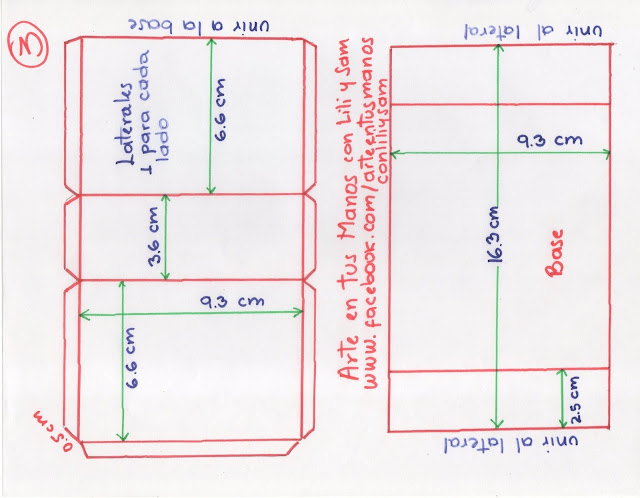 3
unir a la base
Laterales
1 para cada
lado
6.6 cm
3.6 cm
9.3 cm
6.6 cm
0.5 cm
Arte en tus Manos con Lili y Sam
www.facebook.com/arteentusmanos
conliliysam
unir al lateral
9.3 cm
16.3 cm
Base
2.5 cm
unir al lateral